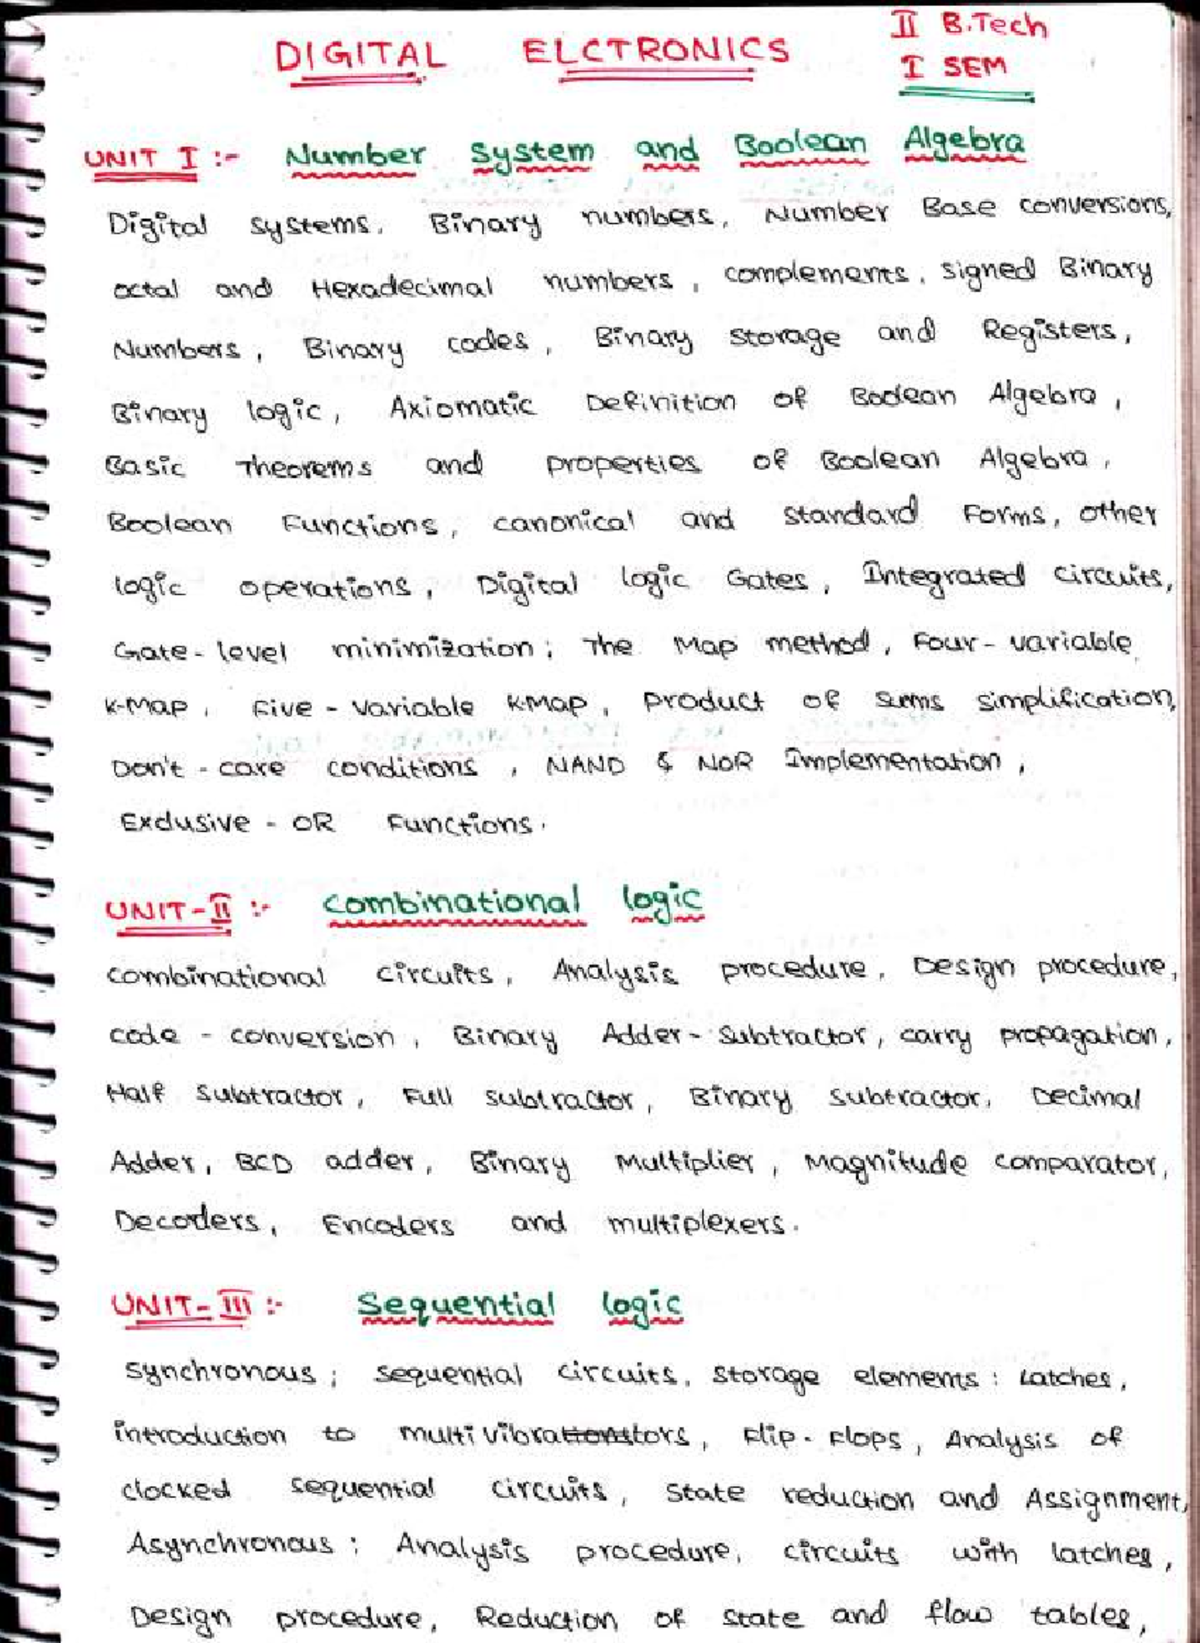 DIGITAL ELCTRONICS
II B.Tech
I SEM
UNIT I :- Number System and Boolean Algebra
Digital systems, Binary numbers, Number Base conversions,
octal and Hexadecimal numbers, complements, signed Binary
Numbers, Binary codes, Binary storage and Registers,
Binary logic, Axiomatic Definition of Boolean Algebra,
Basic Theorems and properties of Boolean Algebra,
Boolean Functions, canonical and standard Forms, other
logic operations, Digital logic Gates, Integrated circuits,
Gate-level minimization; The Map method, Four-variable
K-Map, Five-variable K-Map, product of sums simplification,
Don't-care conditions, NAND & NOR Implementation,
Exclusive-OR Functions.
UNIT-II :- Combinational logic
combinational circuits, Analysis procedure, Design procedure,
code-conversion, Binary Adder-Subtractor, carry propagation,
Half Subtractor, Full subtractor, Binary subtractor, Decimal
Adder, BCD adder, Binary Multiplier, Magnitude comparator,
Decoders, Encoders and multiplexers.
UNIT-III :- Sequential logic
synchronous; sequential circuits, storage elements: Latches,
introduction to multivibrators, Flip-Flops, Analysis of
clocked sequential circuits, state reduction and Assignment,
Asynchronous; Analysis procedure, circuits with latches,
Design procedure, Reduction of state and flow tables,